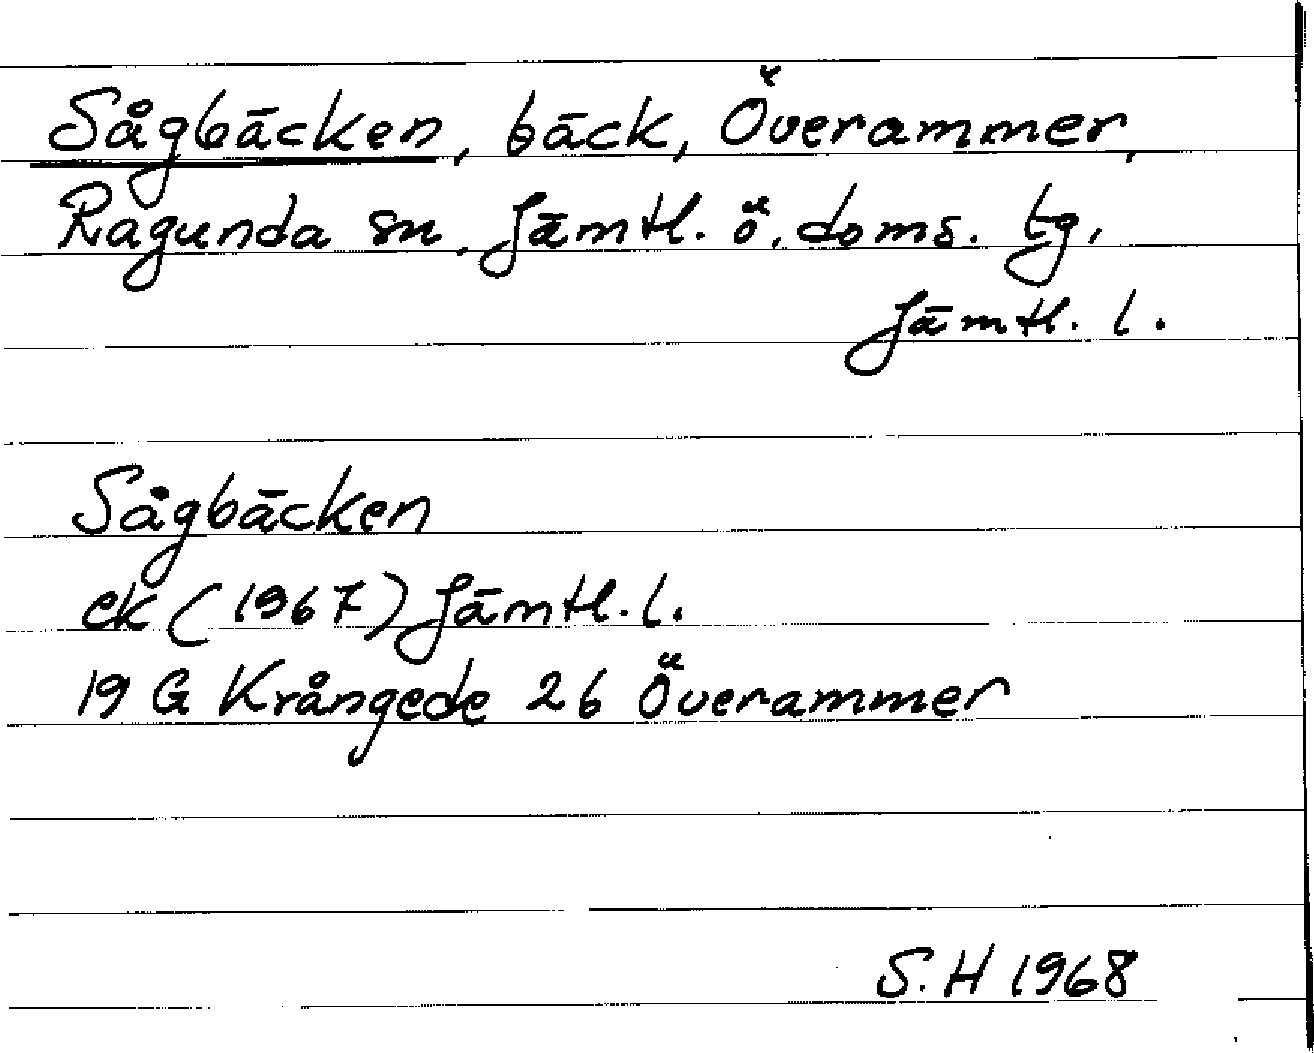 Sågbäcken, bäck, Överammer,
Ragunda sn, Jämtl. ö. doms. tg,
Jämtl. l.
Sågbäcken
ek (1967) Jämtl. l.
19 G Krångede 26 Överammer
S.H 1968